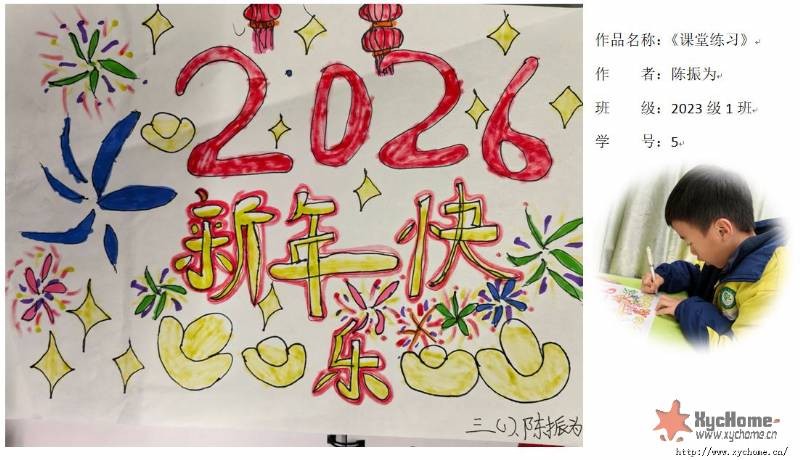 2026
新年快
乐
三(1).陈振为
作品名称：《课堂练习》
作　　者：陈振为
班　　级：2023 级 1 班
学　　号：5
XycHome
www.xychome.cn
http://www.xychome.cn/